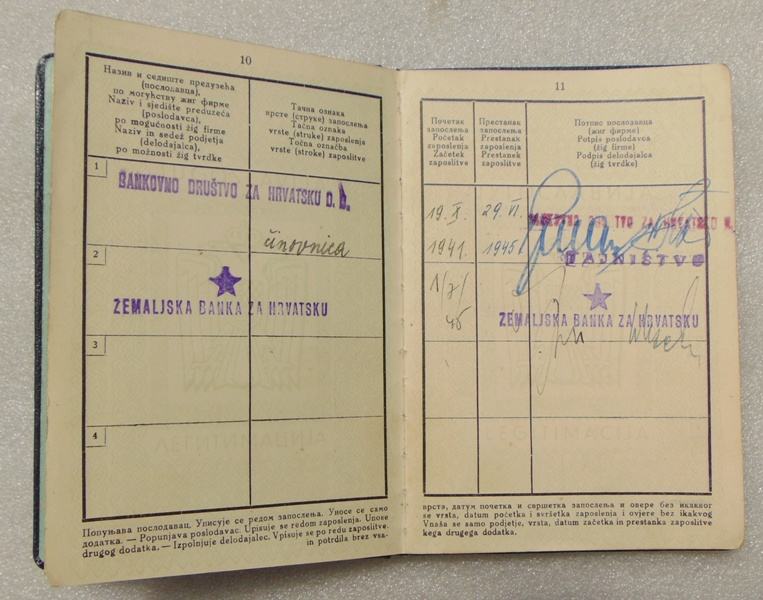 10
Назив и седиште предузећа
(послодавца),
по могућству жиг фирме
Naziv i sjedište preduzeća
(poslodavca),
po mogućnosti žig firme
Naziv in sedež podjetja
(delodajalca),
po možnosti žig tvrdke
Тачна ознака
врсте (струке) запослења
Tačna oznaka
vrste (struke) zaposlenja
Točna označba
vrste (stroke) zaposlitve
1
BANKOVNO DRUŠTVO ZA HRVATSKU D. D.
činovnica
2
ZEMALJSKA BANKA ZA HRVATSKU
3
4
Попуњава послодавац. Уписује се редом запослења. Уносе се само
додатка. — Popunjava poslodavac. Upisuje se redom zaposlenja. Unose
delodajalec. Vpisuje se po redu zaposlitve.
drugog dodatka. — Izpolnjuje
in potrdila brez vsa-
11
Почетак
запослења
Početak
zaposlenja
Začetek
zaposlitve
Престанак
запослења
Prestanak
zaposlenja
Prestanek
zaposlitve
Потпис послодавца
(жиг фирме)
Potpis poslodavca
(žig firme)
Podpis delodajalca
(žig tvrdke)
19. X.
1941.
29. VI.
1945
ZA HRVATSKU
TAJNIŠTVO
45
ZEMALJSKA BANKA ZA HRVATSKU
врста, датум почетка и свршетка запослења и овере без икаквог
se vrsta, datum početka i svršetka zaposlenja i ovjere bez ikakvog
Vnaša se samo podjetje, vrsta, datum začetka in prestanka zaposlitve
kega drugega dodatka.